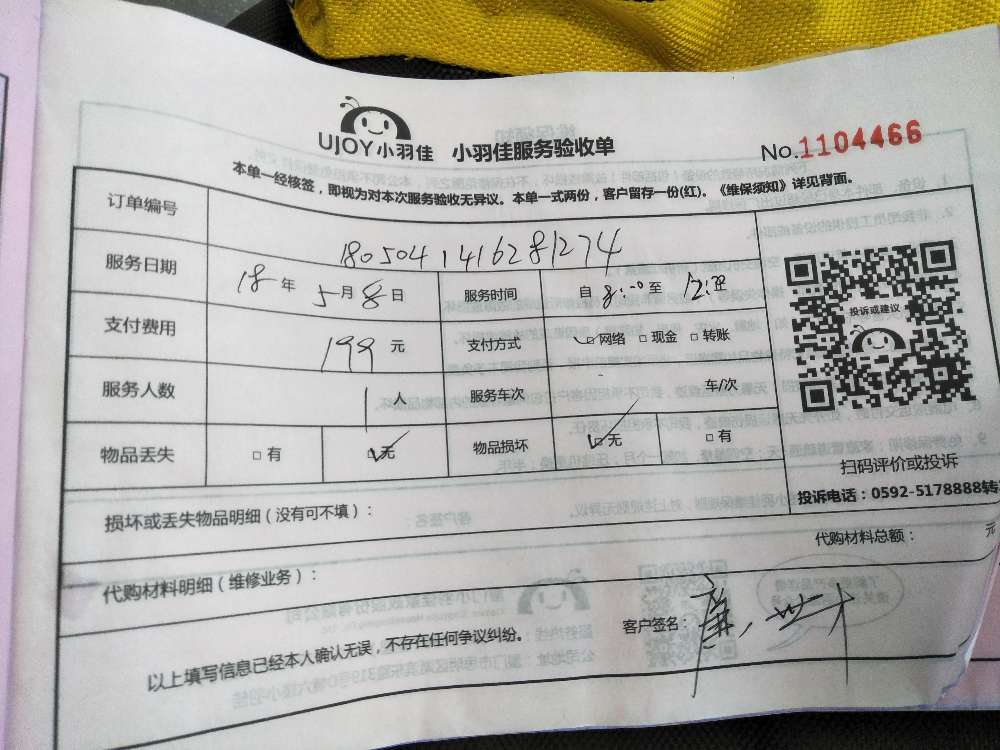 UJOY小羽佳 小羽佳服务验收单 No.1104466
本单一经核签，即视为对本次服务验收无异议。本单一式两份，客户留存一份(红)。《维保须知》详见背面。
订单编号 1805041416281274
服务日期 18年5月8日 服务时间 自8:00至12:00
支付费用 199元 支付方式 □网络 □现金 □转账
服务人数 1人 服务车次 车/次
物品丢失 □有 □无 物品损坏 □无 □有
投诉或建议
扫码评价或投诉
投诉电话：0592-5178888转
损坏或丢失物品明细（没有可不填）：
代购材料明细（维修业务）： 代购材料总额： 元
以上填写信息已经本人确认无误，不存在任何争议纠纷。 客户签名：